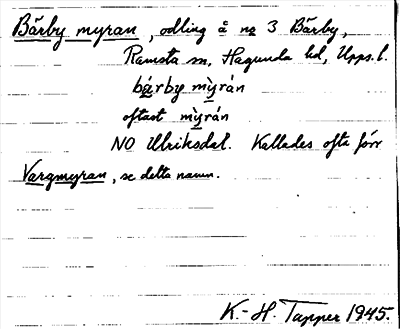 Bärby myran, odling å no 3 Bärby,
Ramsta sn, Hagunda hd, Upps. l.
bárby mỳrán
oftast mỳrán
NO Ulriksdal. Kallades ofta förr
Vargmyran, se detta namn.
K.-H. Tapper 1945.